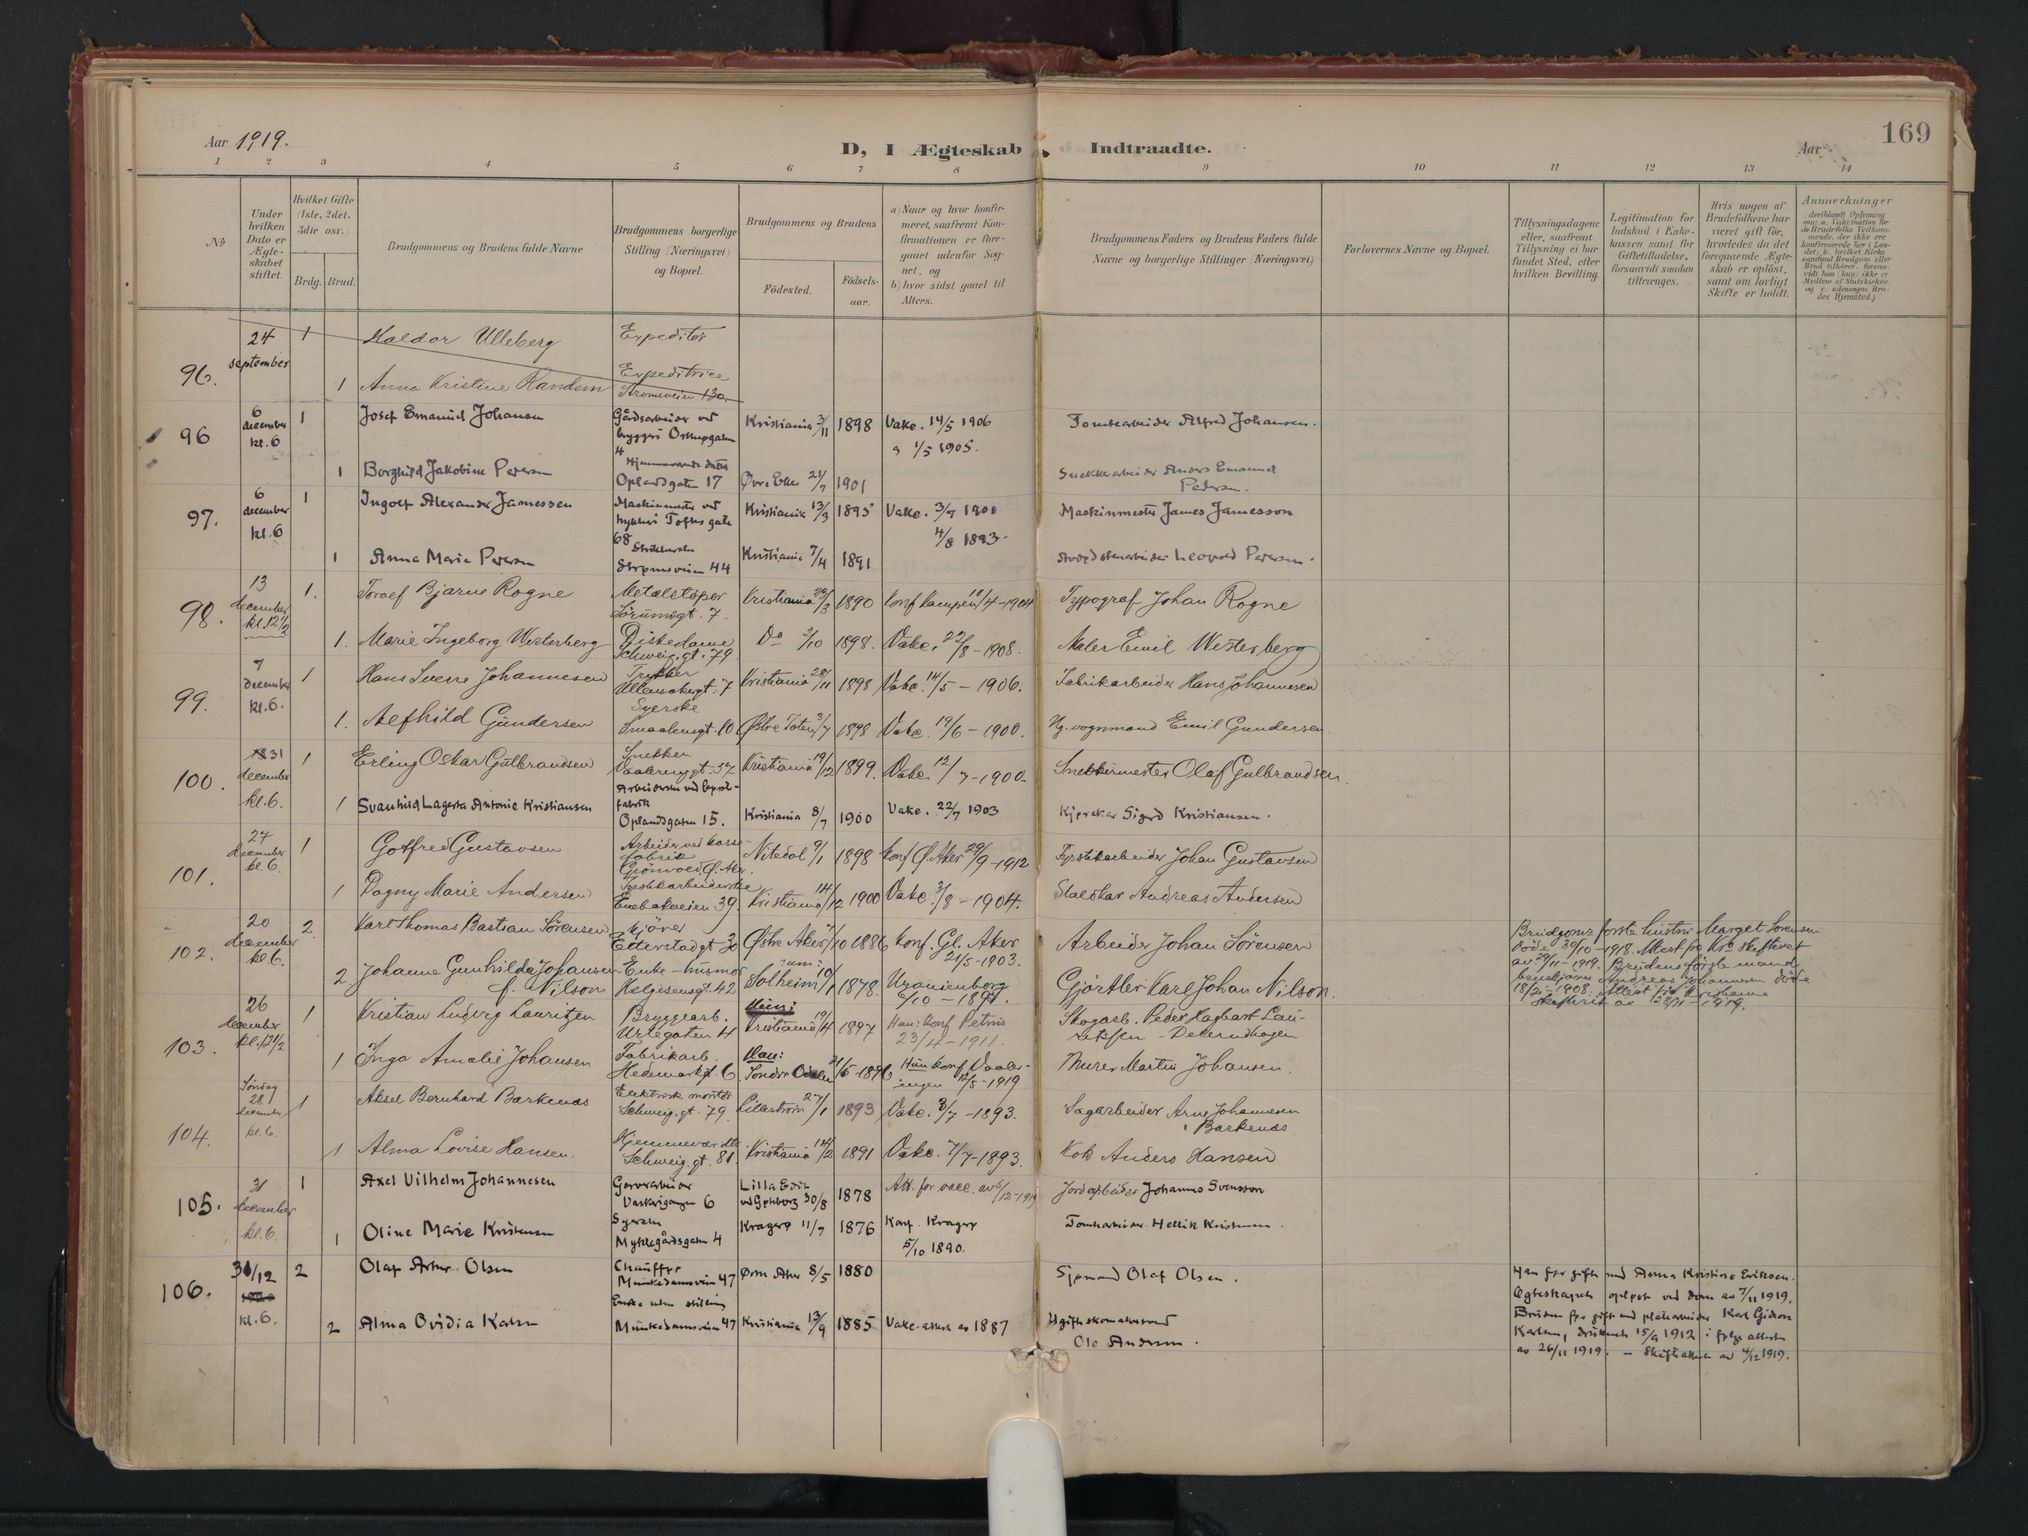 Aar 1919.
D, I Ægteskab Indtraadte.
Aar
169
1 2 3 4 5 6 7 8 9 10 11 12 13 14
No
Under hvilken Dato er Ægteskabet stiftet.
Hvilket Gifte (1ste, 2det, 3die osv.)
Brdg. Brud.
Brudgommens og Brudens fulde Navne
Brudgommens borgerlige Stilling (Næringsvei) og Bopæl.
Brudgommens og Brudens
Fødested.
Fødselsaar.
a) Naar og hvor konfirmeret, saafremt Konfirmationen er foregaaet udenfor Sognet, og
b) hvor sidst gaaet til Alters.
Brudgommens Faders og Brudens Faders fulde Navne og borgerlige Stillinger (Næringsvei)
Forlovernes Navne og Bopæl.
Tillysningsdagene eller, saafremt Tillysning ei har fundet Sted, efter hvilken Bevilling.
Legitimation for Indskud i Enkekassen samt for Giftetilladelse, forsaavidt saadan tiltrænges.
Hvis nogen af Brudefolkene har været gift før, hvorledes da det foregaaende Ægteskab er opløst, samt om lovligt Skifte er holdt.
Anmærkninger
96. 24 september 1 Haldor Ulleberg Expeditør
1 Anna Kristine Randem Expeditrice
Strømsveien 130.
96 6 december kl. 6 1 Josef Emanuel Johansen Gårdsarbeider ved bryggeri 4 Kristiania 3/11 1898 Vakc. 14/5 1906 Tomtearbeider Alfred Johansen.
" 1/5 1905.
1 Borghild Jakobine Pedersen Oplandsgaten 17 Øvre Eker 21/7 1901 Snekkerarbeider Anders Emanuel Pedersen.
97. 6 december kl. 6 1 Ingolf Alexander Jamessen Maskinmester ved Toftes gate 68 Kristiania 13/3 1895 Vakc. 3/7 1901 Maskinmester James Jamesson
4/8 1893.
1 Anna Marie Pedersen Strømsveien 44 Kristiania 7/4 1891 Leopold Pedersen.
98. 13 december kl. 12 1/2 1. Toralf Bjarne Rogne Metalstøper Sørumsgt. 7. Kristiania 29/3 1890 Konf Kampen 10/4-1904 Typograf Johan Rogne
1. Marie Ingeborg Westerberg Diskedame Schweig. gt. 79 Do 2/10 1898. Vakc. 22/8-1908. Maler Emil Westerberg
99. 7 december kl. 6. 1 Hans Sverre Johannesen Trykker 7 Kristiania 28/11 1898 Vakc. 14/5-1906. Fabrikarbeider Hans Johannesen
1. Alfhild Gundersen Syerske Smaalensgt. 10 Østre Toten 3/7 1898 Vakc. 19/6-1900. Hg. vognmand Emil Gundersen
100. 31 december kl. 6. 1 Erling Oskar Gulbrandsen Snekker Vaalerengt. 37 Kristiania 19/12 1899. Vakc. 12/7-1900. Snekkermester Olaf Gulbrandsen
1 Svanhild Lagerta Antonie Kristiansen Arbeiderske ved fabrik Oplandsgaten 15. Kristiania 8/7 1900 Vakc. 22/7 1903 Sigurd Kristiansen.
101. 27 december kl. 6. 1 Gotfred Gustavsen Arbeider ved kassefabrik Grønvold Ø. Aker. Nitedal 9/1 1898 Konf Ø. Aker 29/9-1912 Fyrstikarbeider Johan Gustavsen
1 Dagny Marie Andersen Fyrstikarbeiderske Enebakveien 39. Kristiania 14/12 1900 Vakc. 3/8-1904. Staldkar Andreas Andersen
102. 20 december kl. 6. 2. Karl Thomas Bastian Sørensen Kjører Etterstadgt 30 Østre Aker 7/10 1886 Konf. Gl. Aker 21/5-1903. Arbeider Johan Sørensen
Brudgoms første hustru Marget Sørensen døde 30/10-1918. Attest fra Kra. skifteret av 29/11-1919. Brudens første mand Andreas Johannesen døde 18/2-1908. Attest fra Kristiania skifteret av 28/11-1919.
2 Johanne Gunhilda Johansen f. Nilson Enke-husmor Helgesensgt. 42 Solheim 10/1 1878. Uranienborg 6/10-1891. Gjørtler Karl Johan Nilson.
103. 26 december kl. 12 1/2 1 Kristian Ludvig Lauritzen Bryggearb. Urtegaten 4 Hun: Kristiania 19/4 1897 Han: Konf Petrus 23/4-1911. Skogarb. Peder Hagbart
1 Inga Amalie Johansen Fabrikarb. Hedemarksgt. 6 Han: Søndre Odalen 21/5-1896 Hun konf Vaalerengen 12/5-1919 Murer Martin Johansen.
104. Søndag 28 december kl. 6. 1 Aksel Bernhard Barkenæs Elektrisk montør Schweig. gt. 79. Lillestrøm 27/1 1893 Vakc. 3/7-1893. Sagarbeider Arne Johannesen Barkenæs
1 Alma Lovise Hansen. Hjemmeværdt. Schweig. gt. 81. Kristiania 14/2 1891 Vakc. 7/7-1893. Kok Anders Hansen
105. 31 december kl. 6. 1 Axel Vilhelm Johannesen Garverarbeider 6 Lilla Edet ved Gøteborg 30/8 1878 Att. for vacc. av 5/12-1919 Jordarbeider Johannes Svensson
1 Oline Marie Kristensen Syerske Myklegårdsgaten 4 Kragerø 11/7 1876 Konf. Kragerø 5/10 1890. Tomtearbeider Hellik Kristensen.
106. 30/12 kl. 6. 2 Olaf Artur Olsen Chauffør Munkedamsveien 47 Østre Aker 8/5 1880 Sjømand Olaf Olsen.
Han før gift med Anna Kristine Eriksen. Egteskapet opløst ved dom av 7/11 1919. Bruden før gift med platearbeider Karl Gideon Karlsen, druknet 15/9 1912 i følge attest av 26/11 1919. - Skifteattest av 4/12 1919.
2 Alma Ovidia Karlsen Enke uten stilling Munkedamsveien 47 Kristiania 13/9 1885 Vakc. attest av 1887 Ole Andersen.